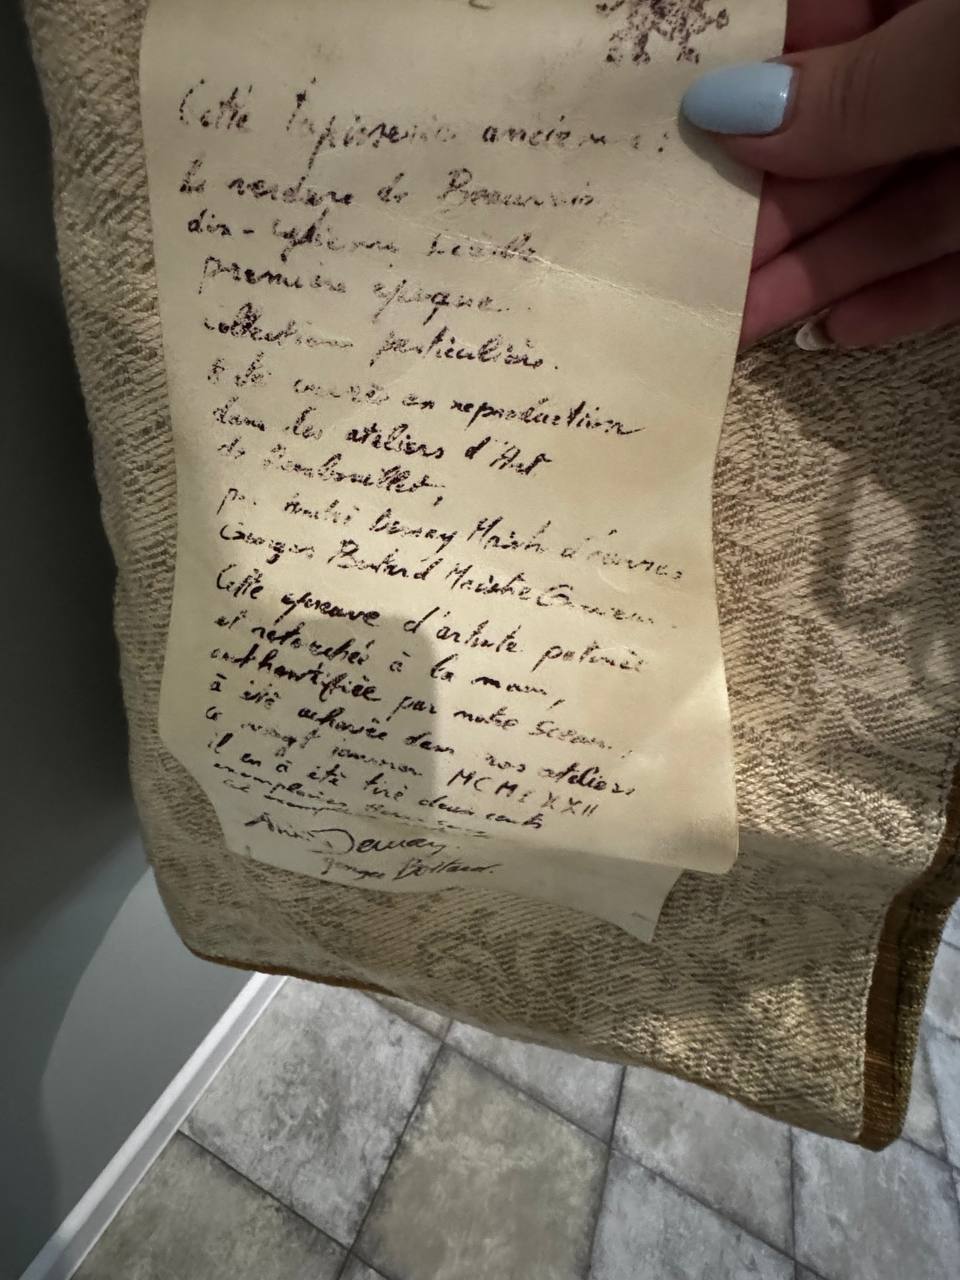 Cette tapisserie ancienne :
la verdure de Beauvais
dix-septième siècle
première époque.
collection particulière.
a été œuvrée en reproduction
dans les ateliers d'Art
de Rambouillet,
par André Demay Maistre d'œuvres
Georges Bottard Maistre
Cette épreuve d'artiste patinée
et retouchée à la main,
authentifiée par notre Sceau,
à été achevée dans nos ateliers
ce vingt
il en à été tiré deux cents
exemplaires
Demay.
Georges Bottard.